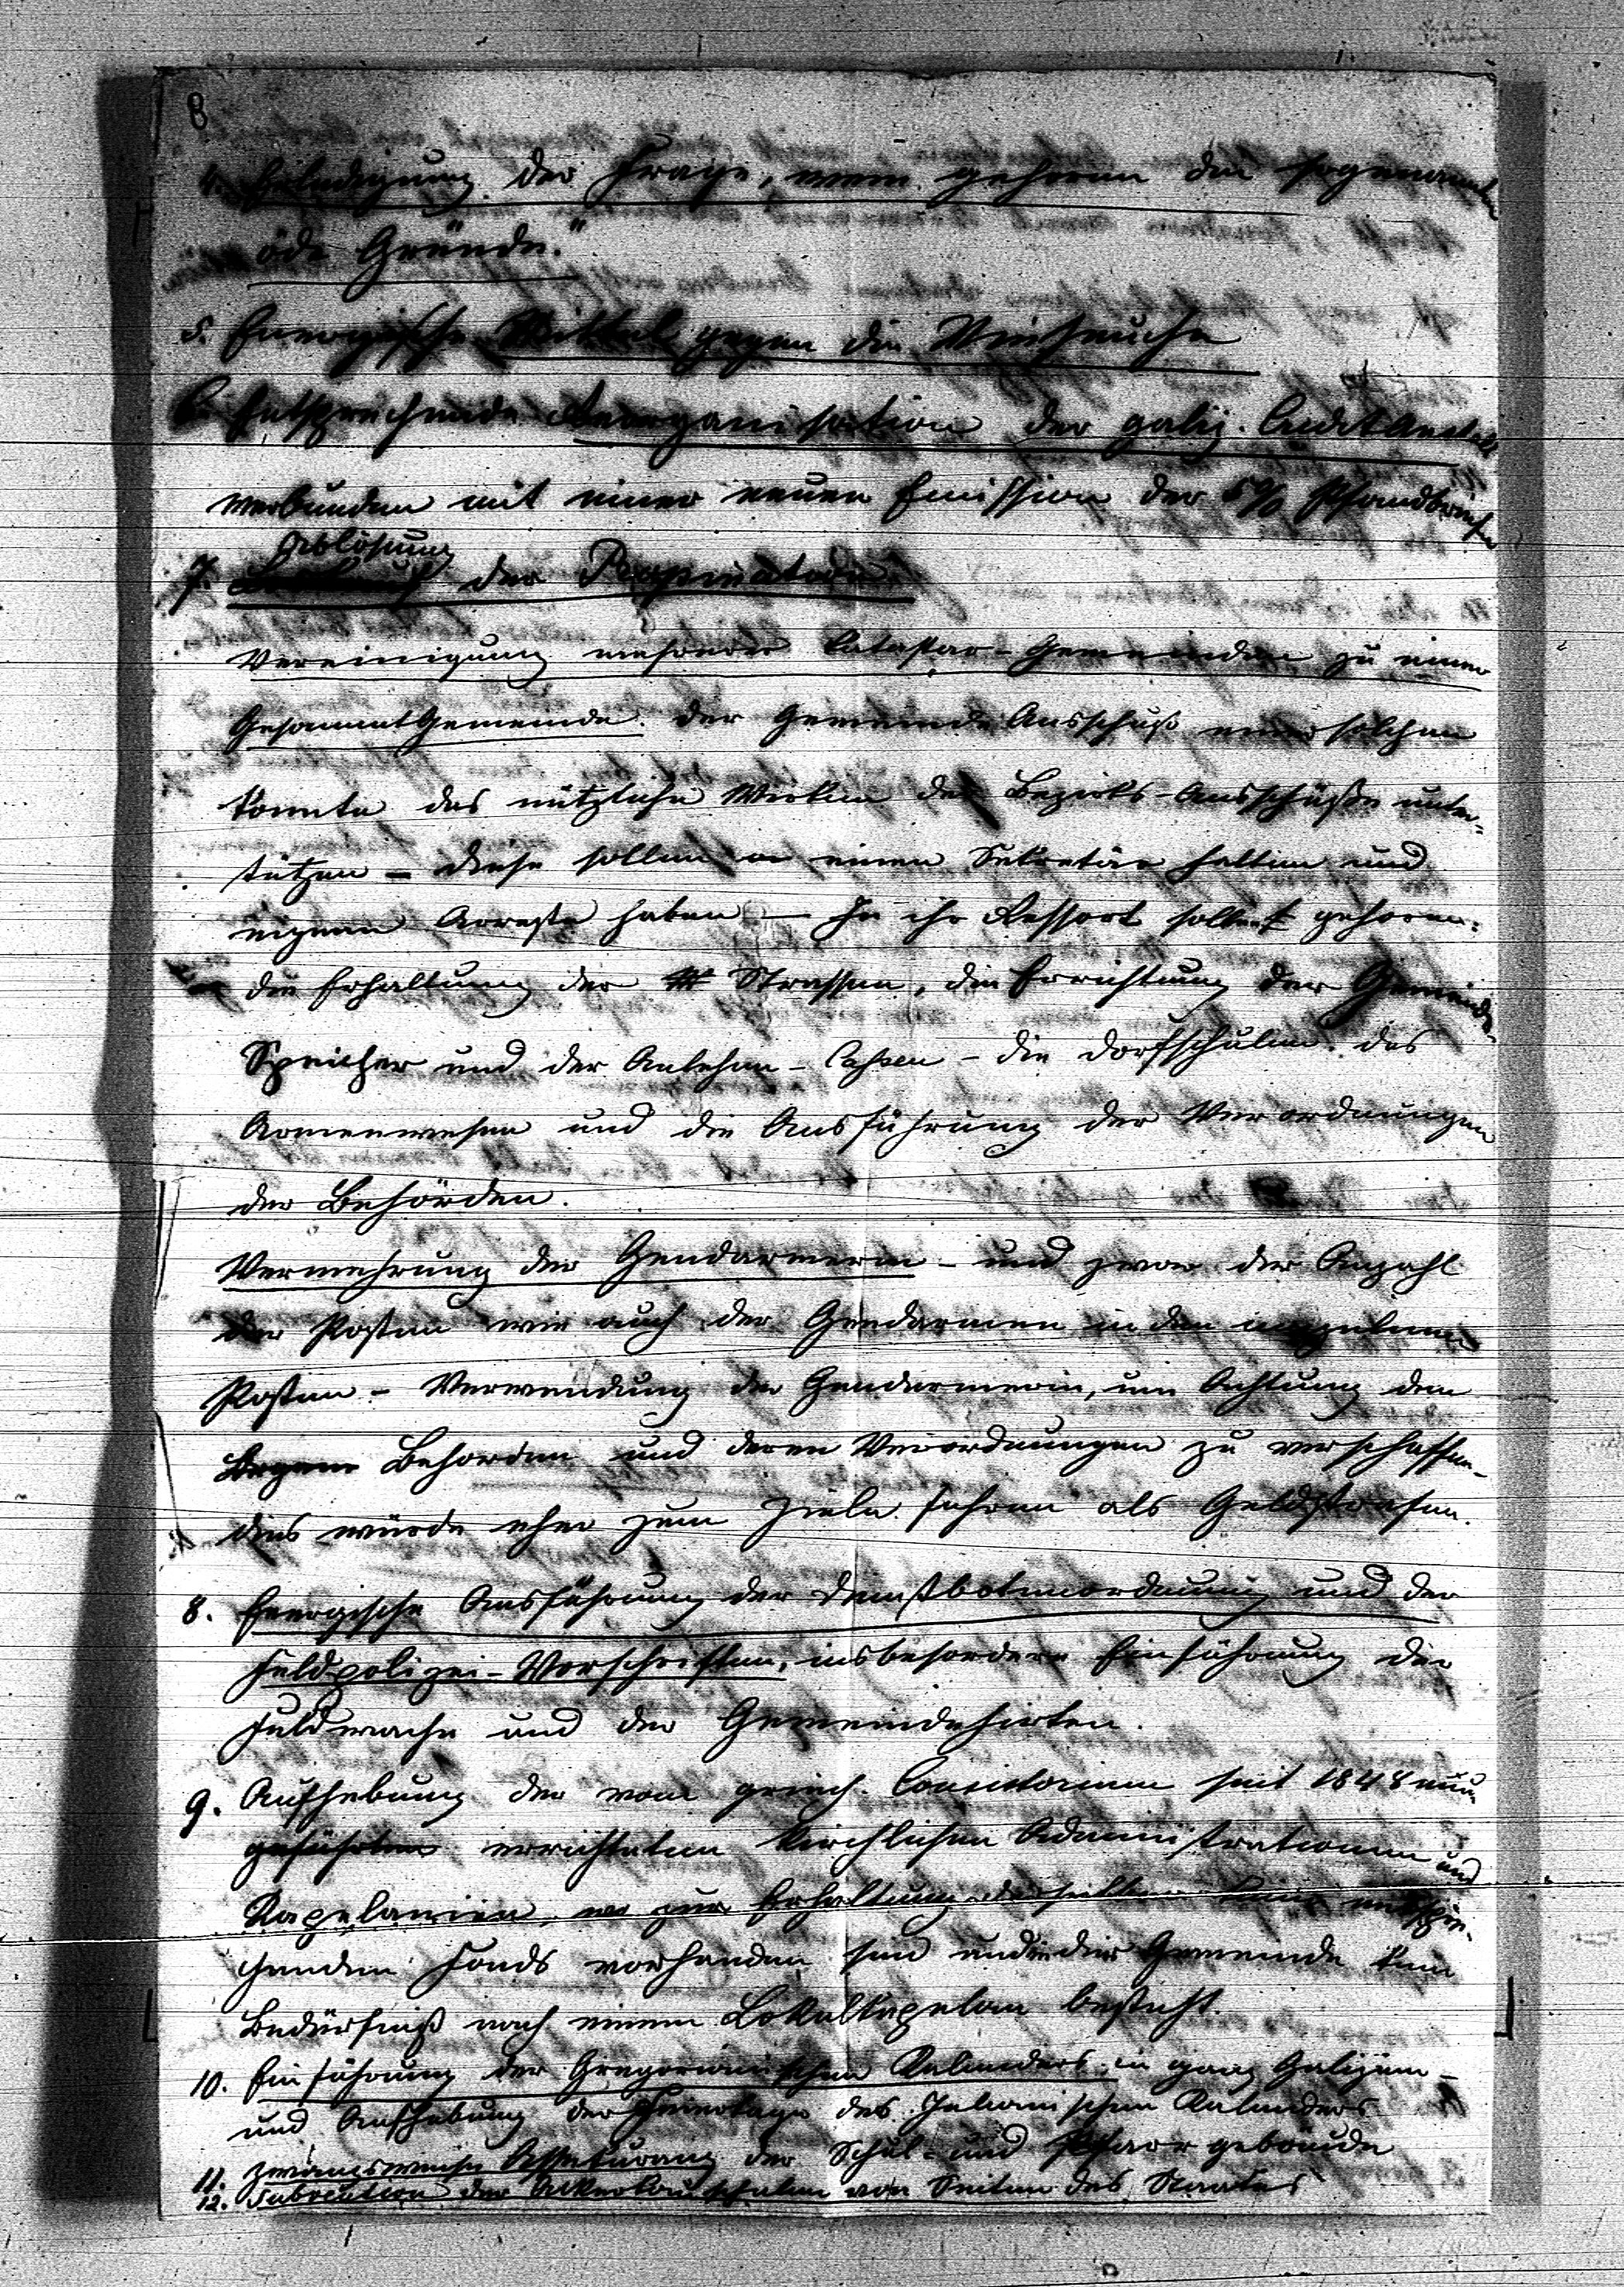 8
4. Erledigung der Frage, wem gehören die sogenannte
öde Gründe."
5. Energische Mittel gegen die Viehseuche
6. Entsprechende Reorganisation der galiz. CreditAnstalt
verbunden mit einer neuen Emission der 5% Pfandbriefe
Ablösung
7. der Propination
Vereinigung mehrerer Cataster-Gemeinden zu einer
GesammtGemeinde. Der Gemeinde Ausschuß einer solchen
könnte das nützliche Wirken der Bezirks-Ausschüße unter-
stützen – diese sollen einen Sekretär halten und
eigenen Arreste haben – In ihr Ressort sollen gehören:
die Erhaltung der Strassen, die Errichtung der Gemeinde-
Speicher und der Anlehen-Cassen – die Dorfschulen das
Armenwesen und die Ausführung der Verordnungen
der Behörden.
Vermehrung der Gendarmerie – und zwar der Anzahl
der Posten wie auch der Gendarmen in den einzelnen
Posten – Verwendung der Gendarmerie, um Achtung den
Behörden und deren Verordnungen zu verschaffen –
dies würde eher zum Ziele führen als Geldstrafen.
8. Energische Ausführung der Dienstbotenordnung und der
Feldpolizei-Vorschriften, insbesondere Einführung der
Feldwache und der Gemeindehirten.
9. Aufhebung der vom griech. Consistorium seit 1848
geführten errichteten kirchlichen Administrationen und
Kapelanien, wo zur Erhaltung derselben keine entspre-
chenden Fonds vorhanden sind und in der Gemeinde kein
Bedürfniß nach einem Lokalkapelan besteht.
10. Einführung des Gregorianischen Kalenders in ganz Galizien –
und Aufhebung der Feiertage des Julianischen Kalenders
11. zwangsweise Assekuranz der Schul- und Pfarrgebäude
12. Subvention der Ackerbauschulen von Seiten des Staates